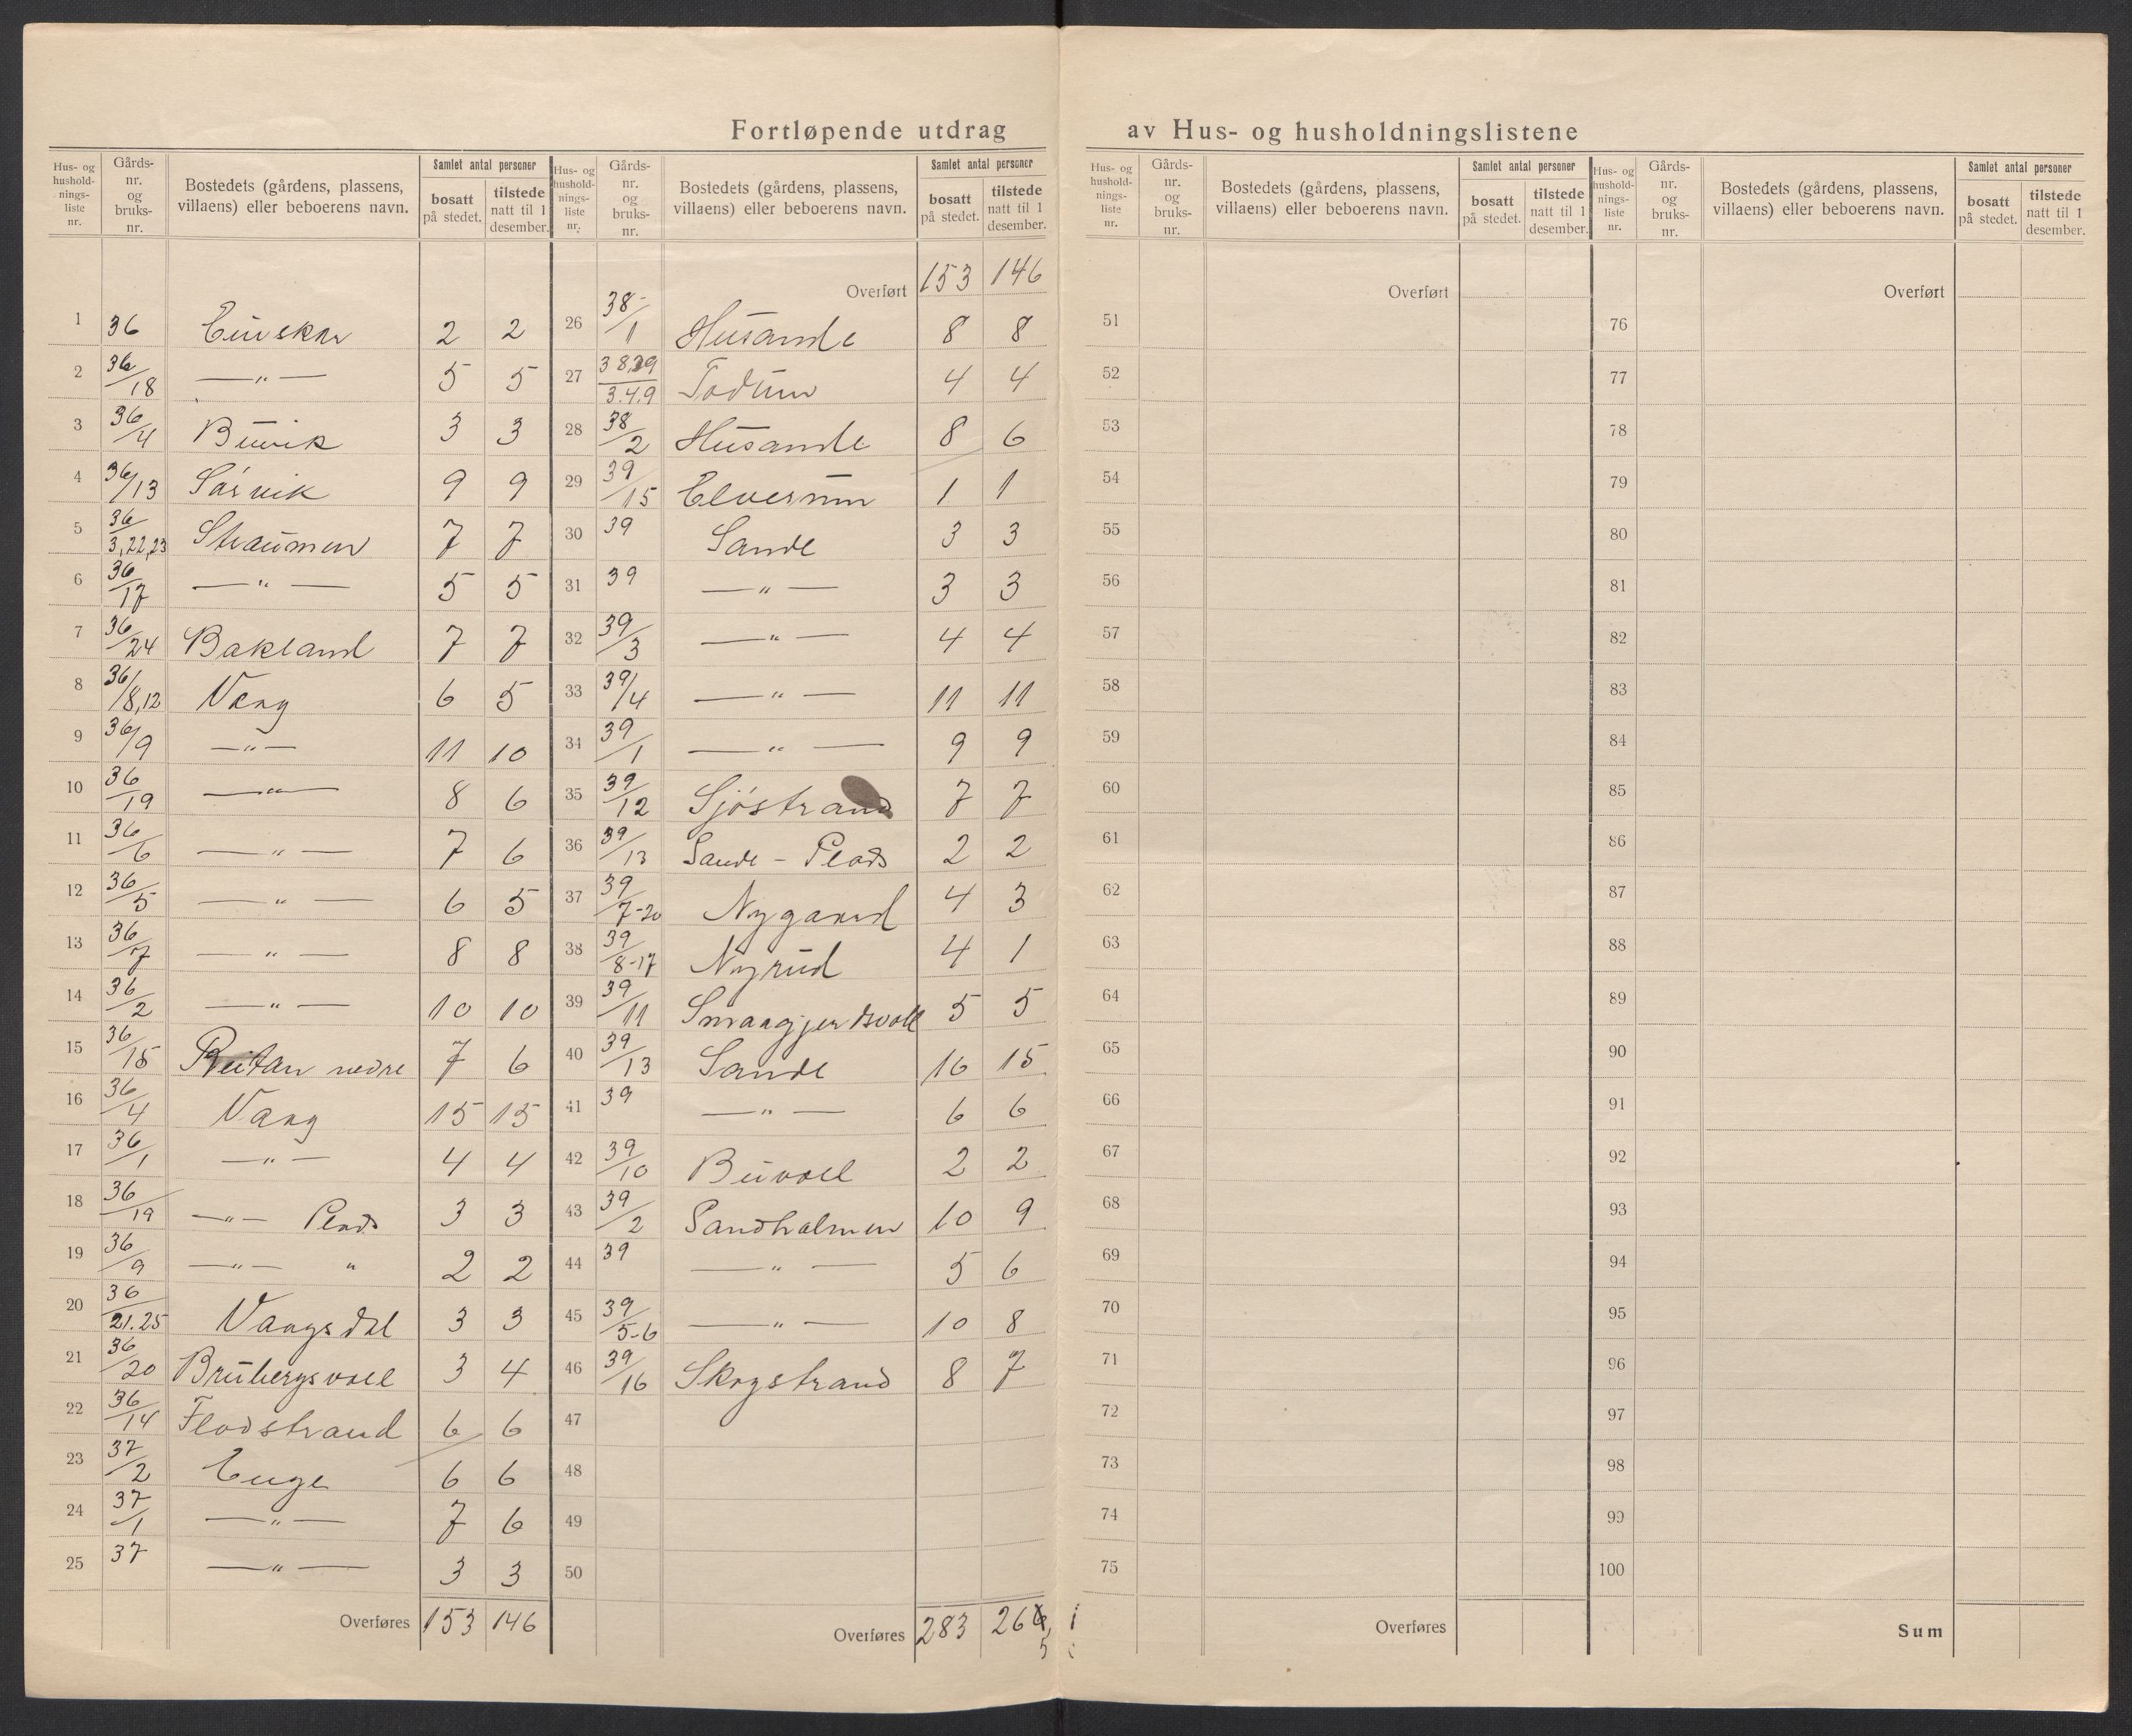 Fortløpende utdrag av Hus- og husholdningslistene
Hus- og husholdningsliste nr. | Gårdsnr. og bruksnr. | Bostedets (gårdens, plassens, villaens) eller beboerens navn. | Samlet antal personer | bosatt på stedet. | tilstede natt til 1 desember.
1 36 2 2
2 36/18 —"— 5 5
3 36/4 Buvik 3 3
4 36/13 Sórvik 9 9
5 36/3,22,23 Straumen 7 7
6 36/17 —"— 5 5
7 36/24 Bakland 7 7
8 36/8,12 Vang 6 5
9 36/9 —"— 11 10
10 36/19 —"— 8 6
11 36/6 —"— 7 6
12 36/5 —"— 6 5
13 36/7 —"— 8 8
14 36/2 —"— 10 10
15 36/15 Reitan nedre 7 6
16 36/4 Vang 15 15
17 36/1 —"— 4 4
18 36/19 —"— Plads 3 3
19 36/9 —"— " 2 2
20 36/21.25 Vangsdal 3 3
21 36/20 Brubergsvoll 3 4
22 36/14 Flodstrand 6 6
23 37/2 Enge 6 6
24 37/1 —"— 7 6
25 37 —"— 3 3
Overføres 153 146
Hus- og husholdningsliste nr. | Gårdsnr. og bruksnr. | Bostedets (gårdens, plassens, villaens) eller beboerens navn. | Samlet antal personer | bosatt på stedet. | tilstede natt til 1 desember.
Overført 153 146
26 38/1 Husande 8 8
27 3.4.9 4 4
28 38/2 Husande 8 6
29 39/15 Elverum 1 1
30 39 Sande 3 3
31 39 —"— 3 3
32 39/3 —"— 4 4
33 39/4 —"— 11 11
34 39/1 —"— 9 9
35 39/12 Sjóstrand 7 7
36 39/13 Sande - Plads 2 2
37 39/7-20 Nygaard 4 3
38 39/8-17 Nyrud 4 1
39 39/11 5 5
40 39/13 Sande 16 15
41 39 —"— 6 6
42 39/10 Buvoll 2 2
43 39/2 Sandholmen 10 9
44 39 —"— 5 6
45 39/5-6 —"— 10 8
46 39/16 Skogstrand 8 7
47
48
49
50
Overføres 283 264 5
Hus- og husholdningsliste nr. | Gårdsnr. og bruksnr. | Bostedets (gårdens, plassens, villaens) eller beboerens navn. | Samlet antal personer | bosatt på stedet. | tilstede natt til 1 desember.
Overført
51
52
53
54
55
56
57
58
59
60
61
62
63
64
65
66
67
68
69
70
71
72
73
74
75
Overføres
Hus- og husholdningsliste nr. | Gårdsnr. og bruksnr. | Bostedets (gårdens, plassens, villaens) eller beboerens navn. | Samlet antal personer | bosatt på stedet. | tilstede natt til 1 desember.
Overført
76
77
78
79
80
81
82
83
84
85
86
87
88
89
90
91
92
93
94
95
96
97
98
99
100
Sum